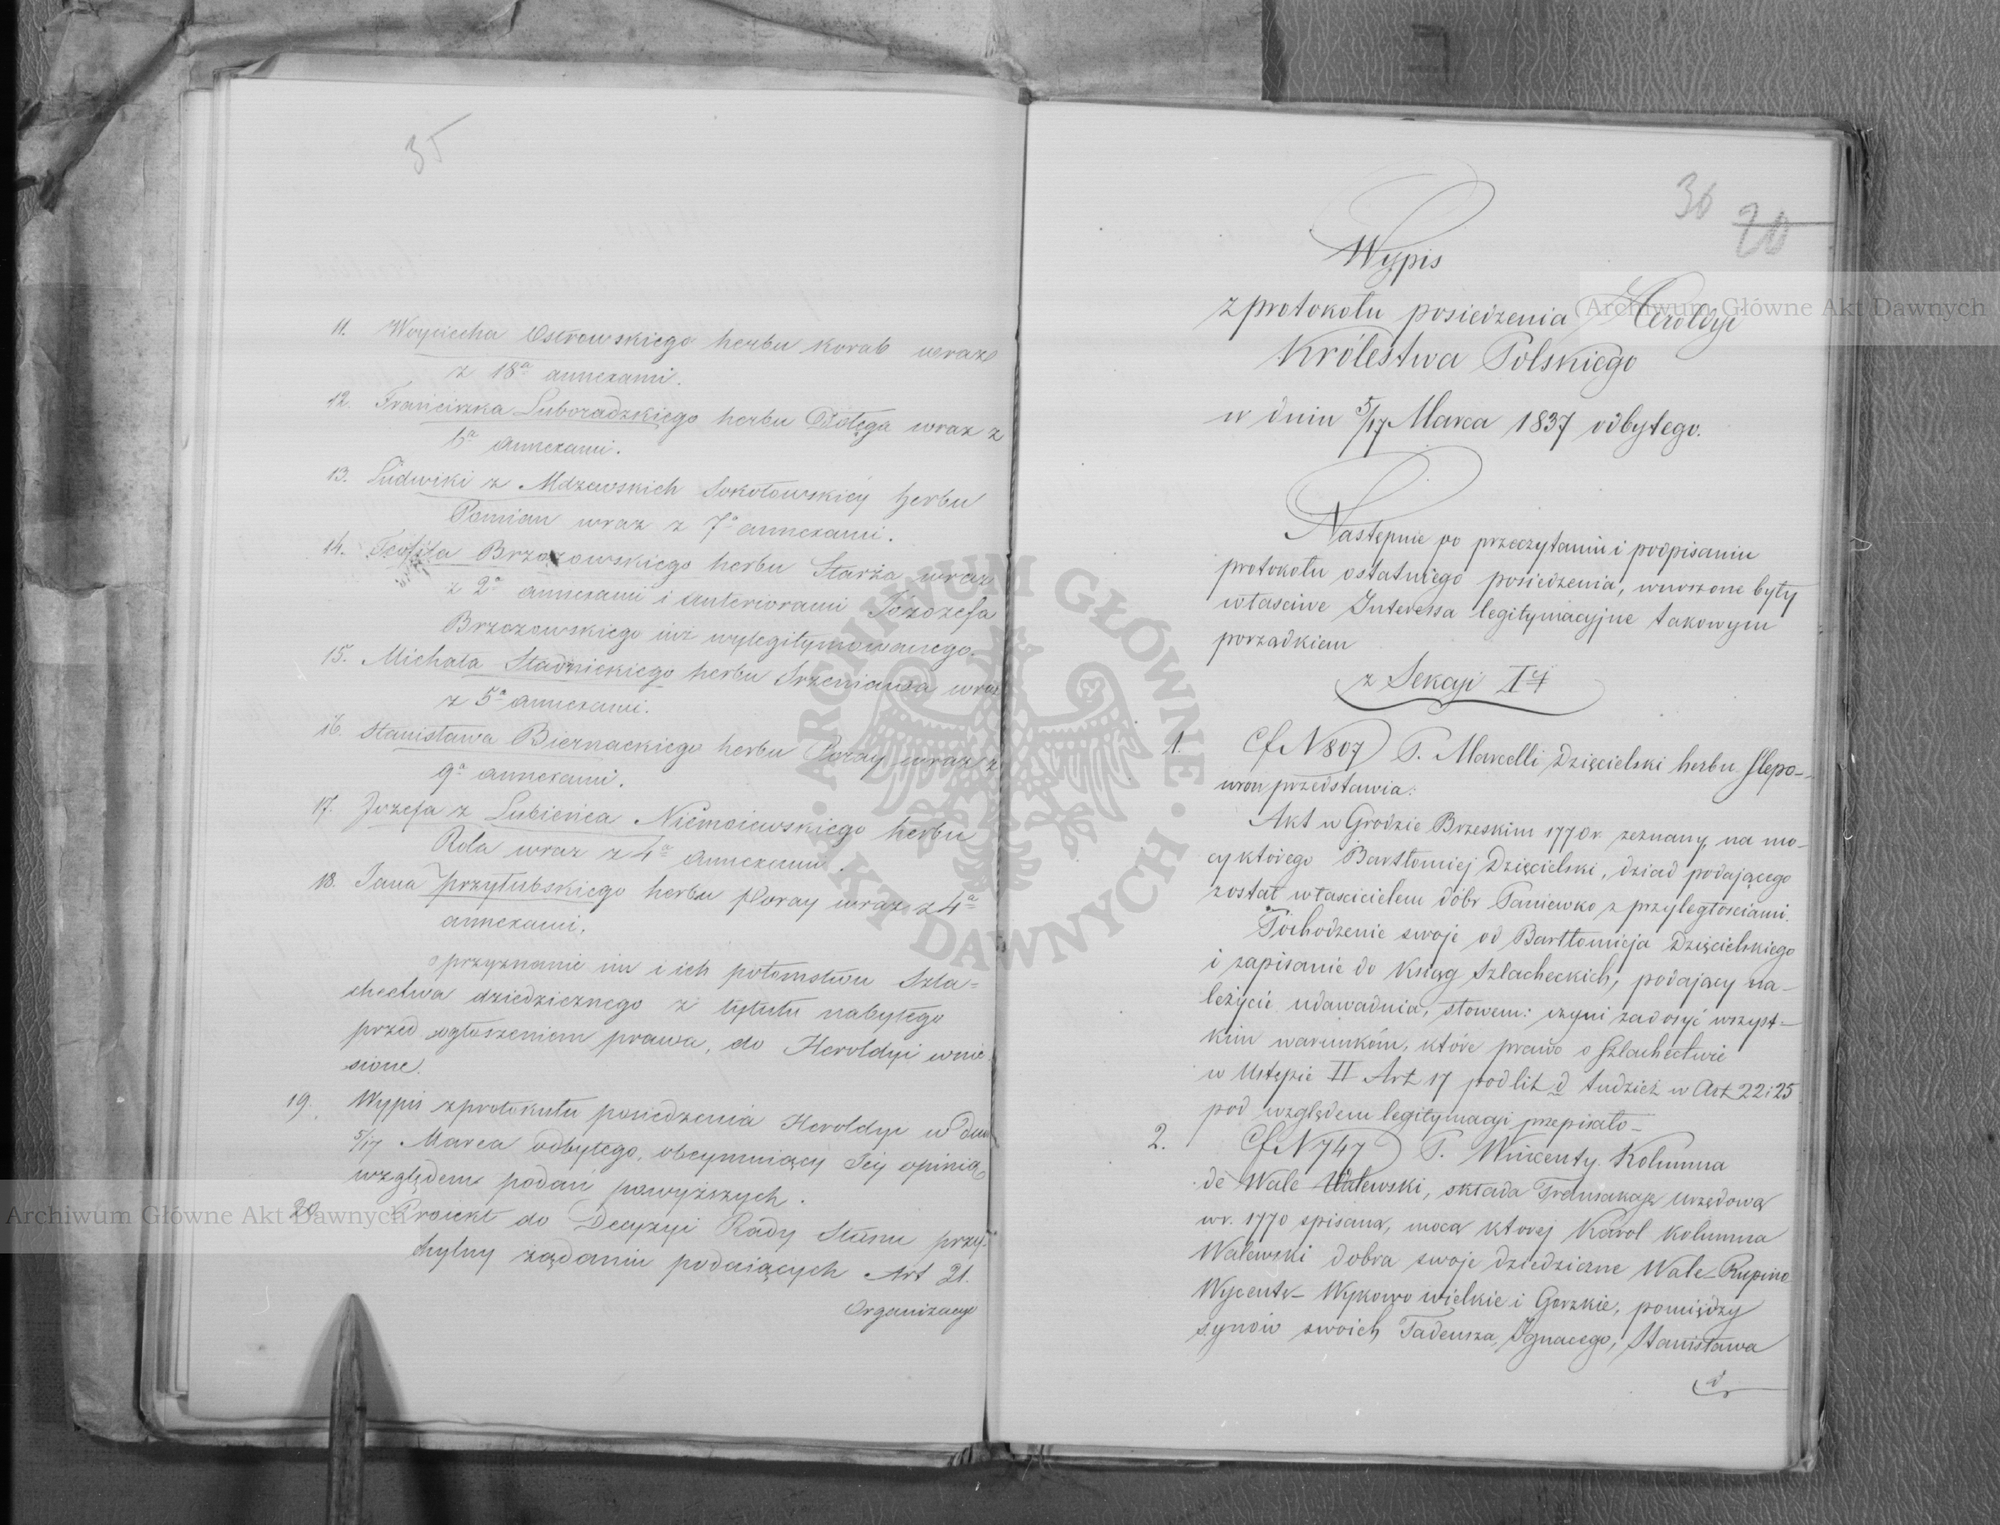 35
11. Woyciecha Ostrowskiego herbu Korab wraz
z 18ª annexami.
12. Franciszka Luboradzkiego herbu Dołęga wraz z
6ª annexami.
13. Ludwiki z Mdzewskich Sokołowskiey herbu
Pomian wraz z 7ª annexami.
14. Teofila Brzozowskiego herbu Starża wraz
z 2ª annexami i anteriorami Józozefa
Brzozowskiego iuż wylegitymowanego.
15. Michała Stadnickiego herbu Srzeniawa wraz
z 5ª annexami.
16. Stanisława Biernackiego herbu Poray wraz z
9ª annexami.
17. Jozefa z Lubieńca Niemoiewskiego herbu
Rola wraz z 4ª annexami.
18. Jana Przyłubskiego herbu Poray wraz z 4ª
annexami,
o przyznanie im i ich potomstwu Szla=
chectwa dziedzicznego z tytułu nabytego
przed ogłoszeniem prawa, do Heroldyi wnie
sione.
19. Wypis z protokułu posiedzenia Heroldyi w dniu
5/17 Marca odbytego, obeymuiący Jey opinią
względem podań powyższych.
20. Proiekt do Decyzyi Rady Stanu przy=
chylny żądaniu podaiących Art 21.
Organizacyi
36
20
Wypis
z protokołu posiedzenia Heroldyi
Królestwa Polskiego
w dniu 5/17 Marca 1837 odbytego.
Następnie po przeczytaniu i podpisaniu
protokołu ostatniego posiedzenia, wnoszone były
właściwe Interessa legitymacyjne takowym
porządkiem
z Sekcyi Iéj
1. Cf N 807) P. Marcelli Dzięcielski herbu Ślepo-
wron przedstawia:
Akt w Grodzie Brzeskim 1770 r. zeznany, na mo-
cy którego Bartłomiej Dzięcielski, dziad podającego
został właścicielem dóbr Paniewko z przyległościami.
Pochodzenie swoje od Bartłomieja Dzięcielskiego
i zapisanie do Ksiąg Szlacheckich, podający na-
leżycie udawadnia, słowem: czyni zadosyć wszyst-
kim warunkóm, które prawo o Szlachectwie
w Ustępie II Art 17 pod lit d tudzież w Art 22 i 25
pod względem legitymacyi przepisało_
2. Cf N 747) P. Wincenty Kolumna
de Wale Walewski, składa Tranzakcyę urzędową
w r. 1770 spisaną, mocą ktorej Karol Kolumna
Walewski dobra swoje dziedziczne Wale_Rupino
Wycenty_ Wykowo wielkie i Gorzkie, pomiędzy
synów swoich Tadeusza, Ignacego, Stanisława
i
Archiwum Główne Akt Dawnych
Archiwum Główne Akt Dawnych
· ARCHIWUM GŁÓWNE · AKT DAWNYCH